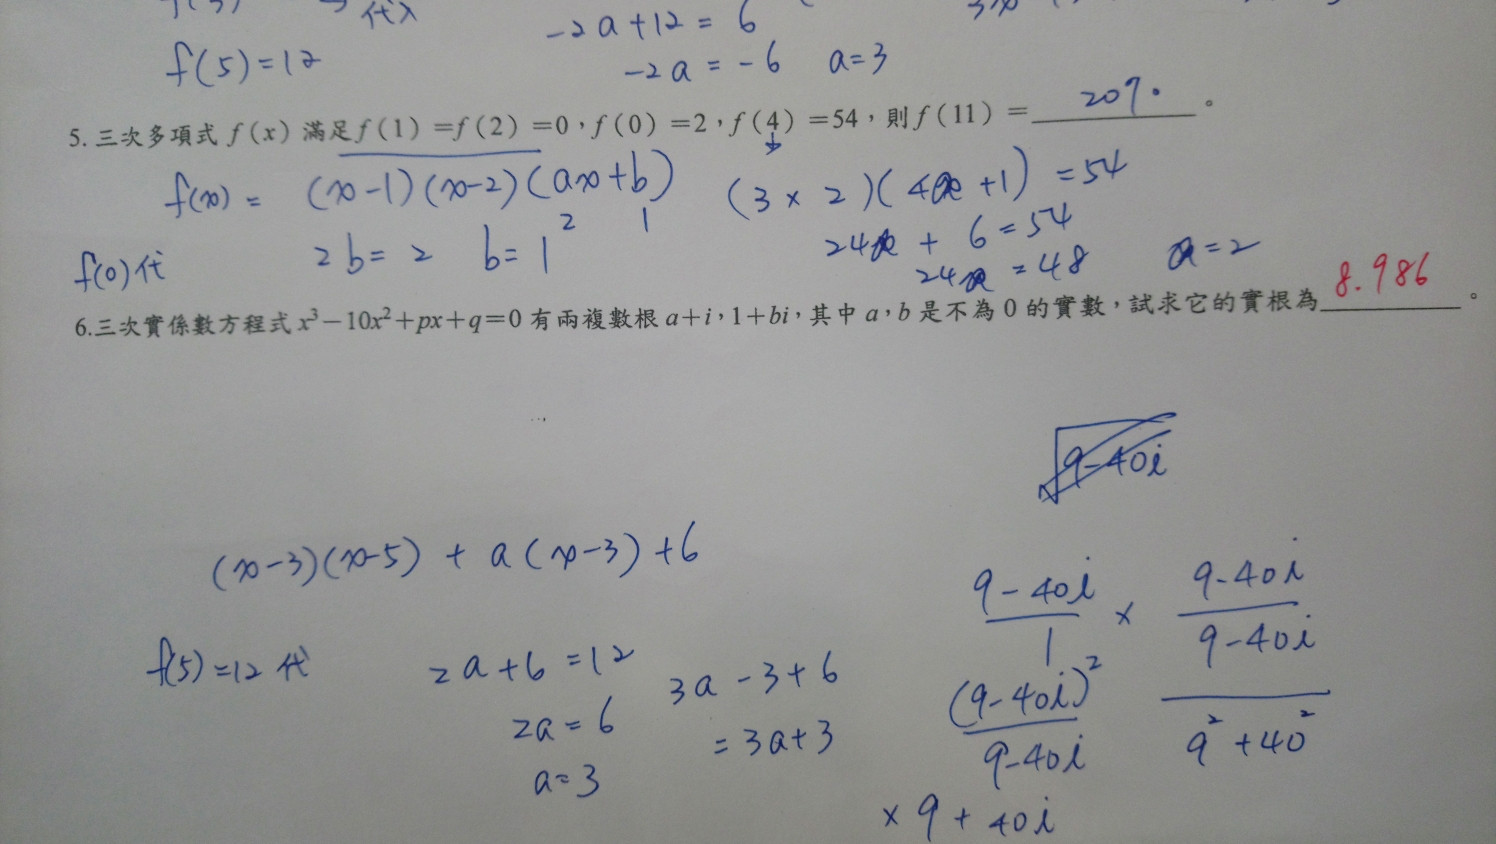 代入
-2a+12=6
f(5)=12
-2a=-6 a=3
5. 三次多項式 f(x) 滿足 f(1)=f(2)=0，f(0)=2，f(4)=54，則 f(11)= 2070。
f(x)= (x-1)(x-2)(ax+b) (3×2)(4a+1)=54
2 1
f(0)代 2b=2 b=1 24a+6=54
24a=48 a=2
6.三次實係數方程式 x³-10x²+px+q=0 有兩複數根 a+i，1+bi，其中 a，b 是不為 0 的實數，試求它的實根為 8.986 。
9-40i
(x-3)(x-5)+a(x-3)+6
9-40i / 1 × 9-40i / 9-40i
f(5)=12代 2a+6=12 3a-3+6
2a=6 =3a+3
a=3
(9-40i)² / 9-40i
9²+40²
×9+40i